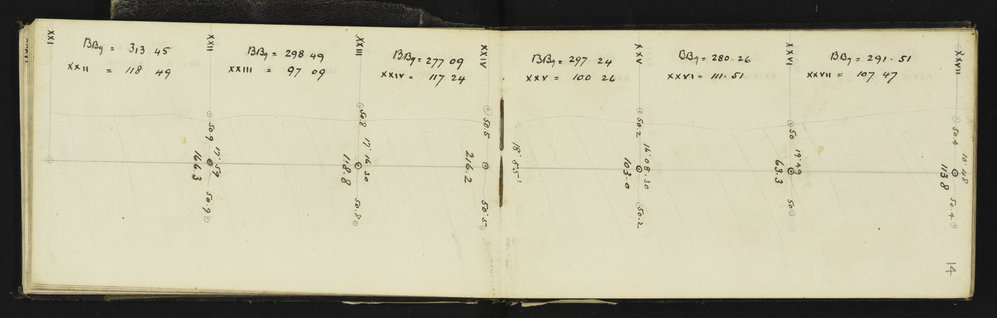 XXI
XXII
XXIII
XXIV
XXV
XXVI
XXVII
BBg = 313 45
XXII = 118 49
BBg = 298 49
XXIII = 97 09
BBg = 277 09
XXIV = 117 24
BBg = 297 24
XXV = 100 26
BBg = 280. 26
XXVI = 111. 51
BBg = 291. 51
XXVII = 107 47
50.9
166.3
50.9
50.8
17. 16. 30
118.8
50.8
50.5
216.2
50.5
18° 55'
50.2
16.08.30
103.0
50.2
50
19°49
63.3
50
50.4
113.8
50.4
14